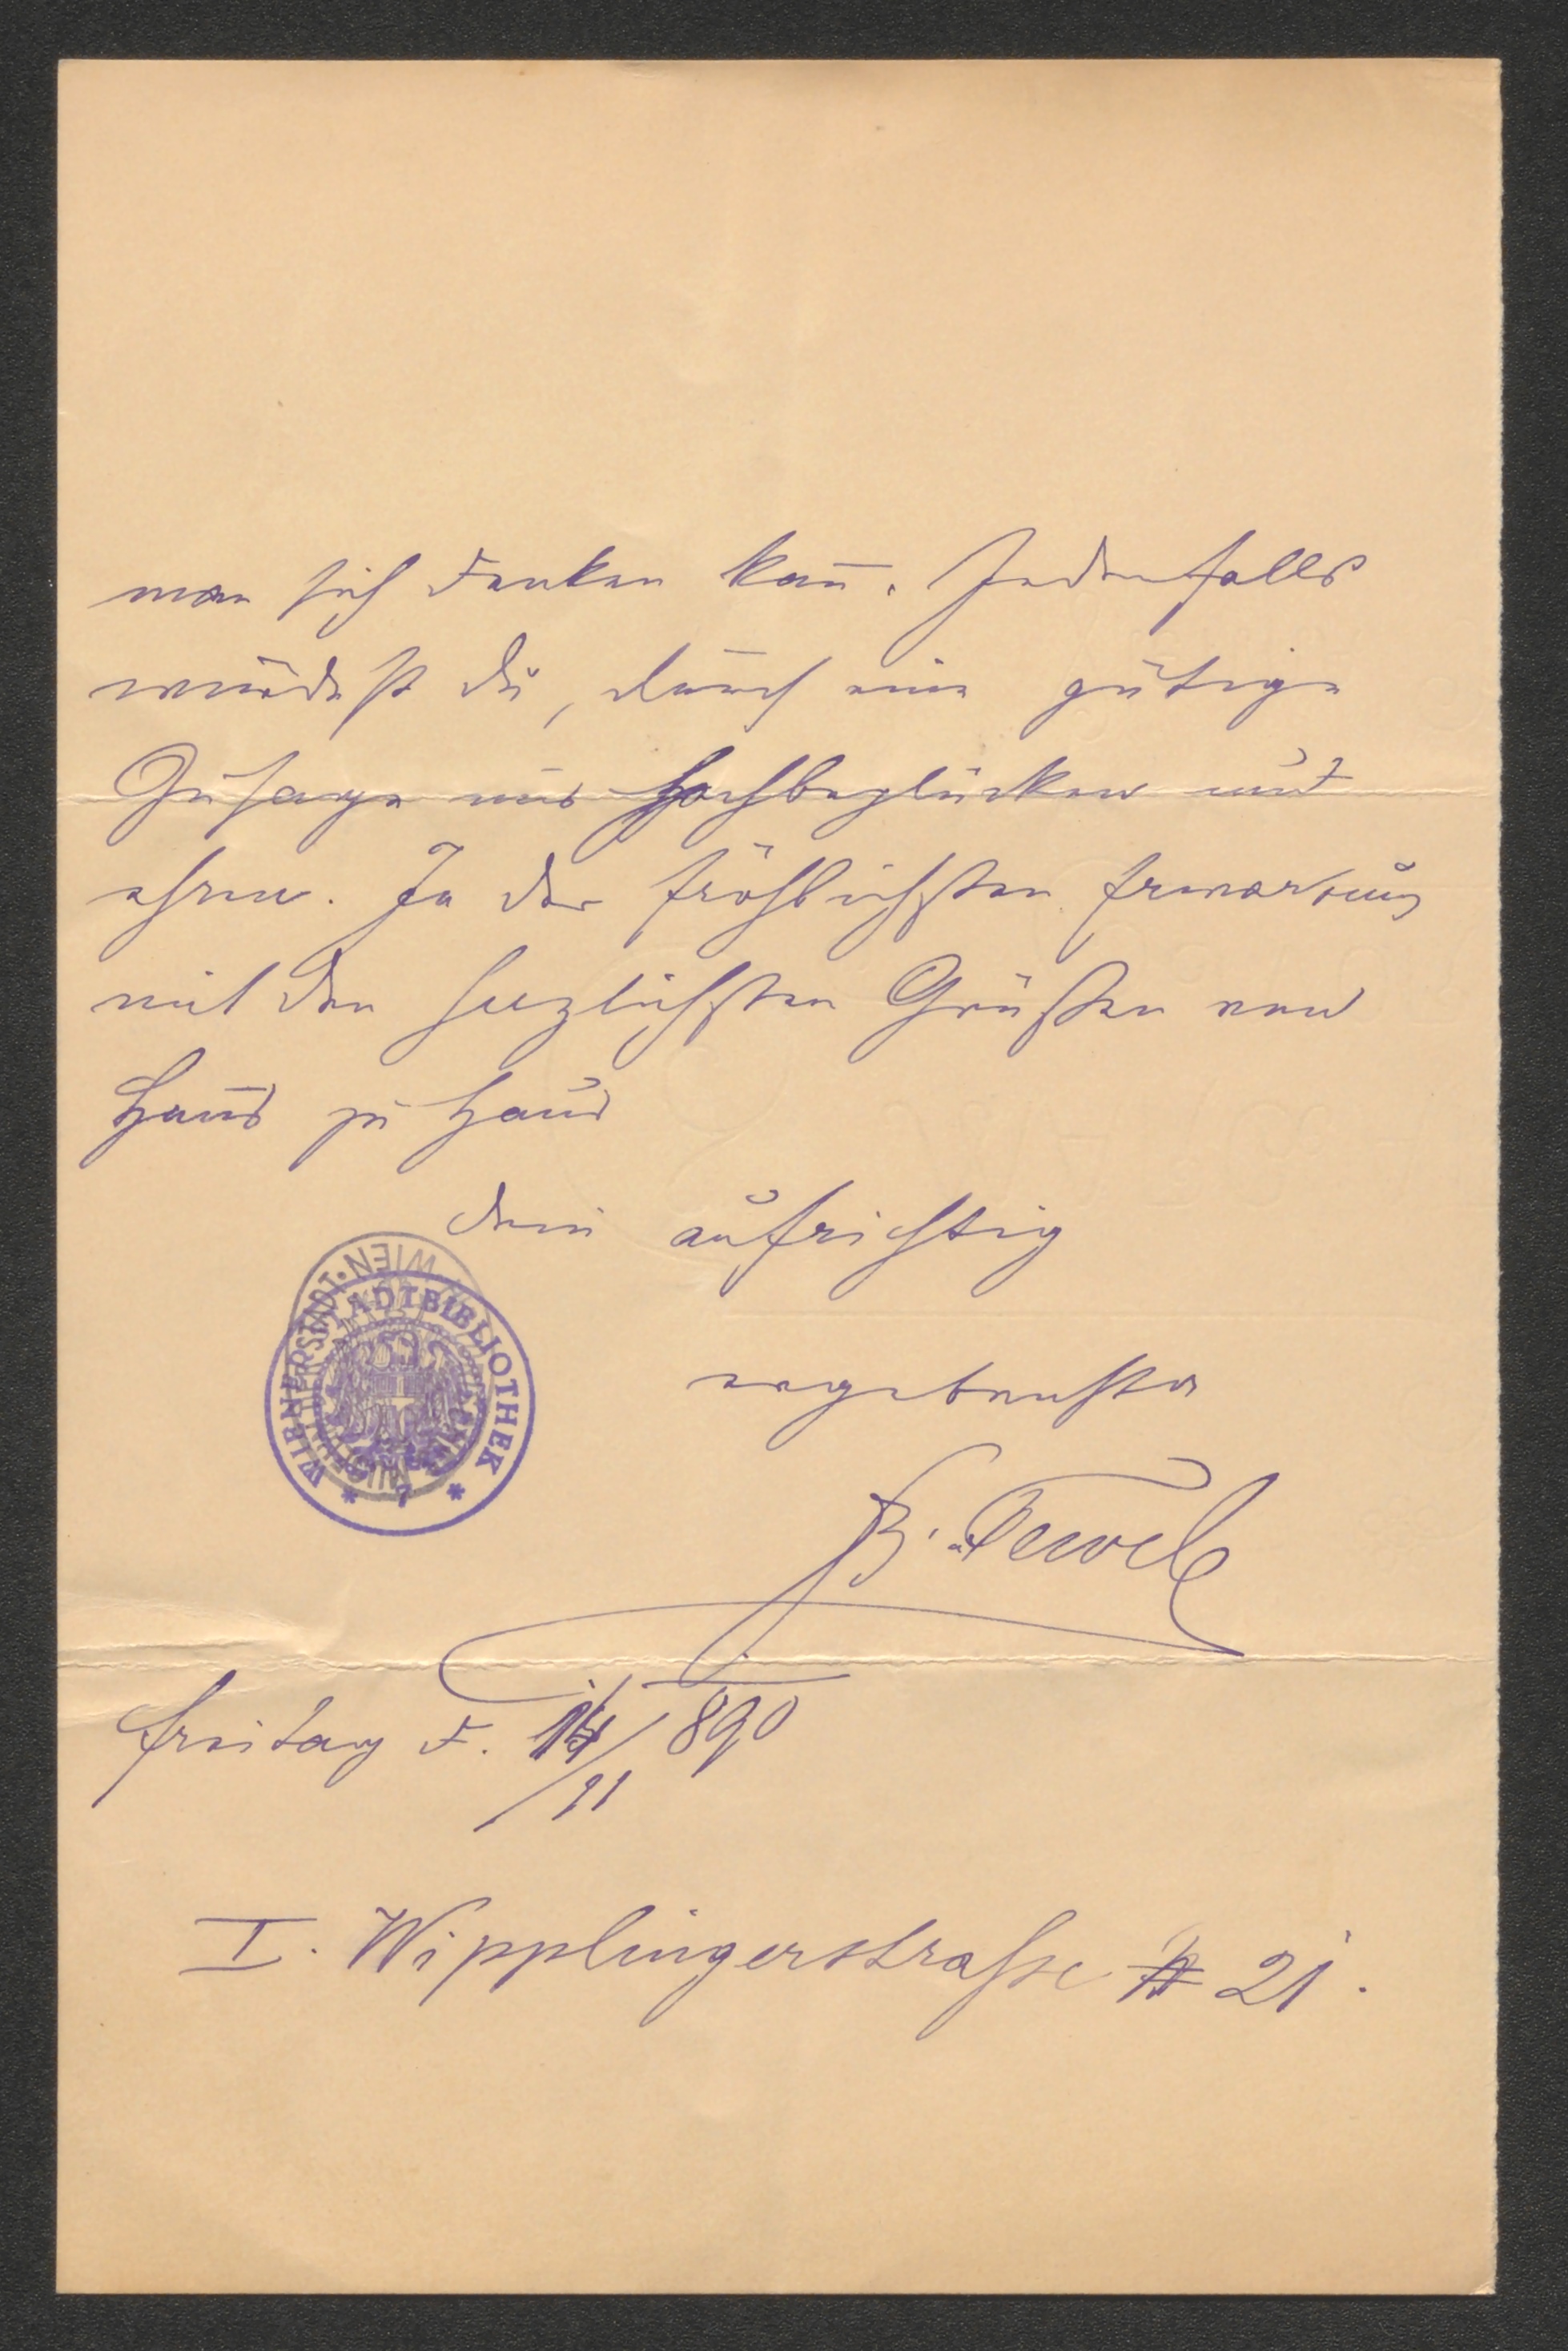 man sich denken kañ. Jedenfalls
würdest du, durch eine gütige
Zusage uns hochbeglücken und
ehren. In der fröhlichsten Erwartung
mit den herzlichsten Grüßen von
Haus zu Haus
dein aufrichtig
ergebenster
B. Tewele
Freitag d. 14/11 890
I. Wipplingerstrasse # 21.
WIENER STADTBIBLIOTHEK